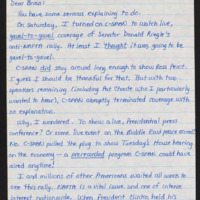 Dear Brian:
You have some serious explaining to do.
On Saturday, I turned on C-SPAN to watch live,
gavel-to-gavel coverage of Senator Donald Riegle's
anti-NAFTA rally. At least I thought it was going to be
gavel-to-gavel.
C-SPAN did stay around long enough to show Ross Perot.
I guess I should be thankful for that. But with two
speakers remaining (including Pat Choate who I particularly
wanted to hear), C-SPAN abruptly terminated coverage with
no explanation.
Why, I wondered. To show a live, Presidential press
conference? Or some live event on the
No. C-SPAN pulled the plug to show Tuesday's House hearing
on the economy — a prerecorded program C-SPAN could have
aired anytime!
I and millions of other Americans waited all week to
see this rally. NAFTA is a vital issue and one of intense
interest nationwide. When President Clinton held his